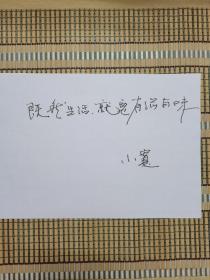 既然生活,就宽有滋有味
小宽